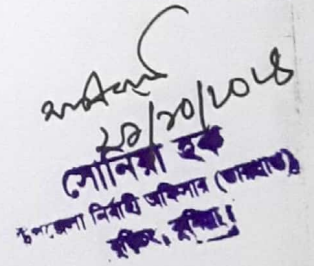 ২৯/১০/২০২৪
সোনিয়া হক
উপজেলা নির্বাহি অফিসার (ভারপ্রাপ্ত)
বুড়িচং, কুমিল্লা।